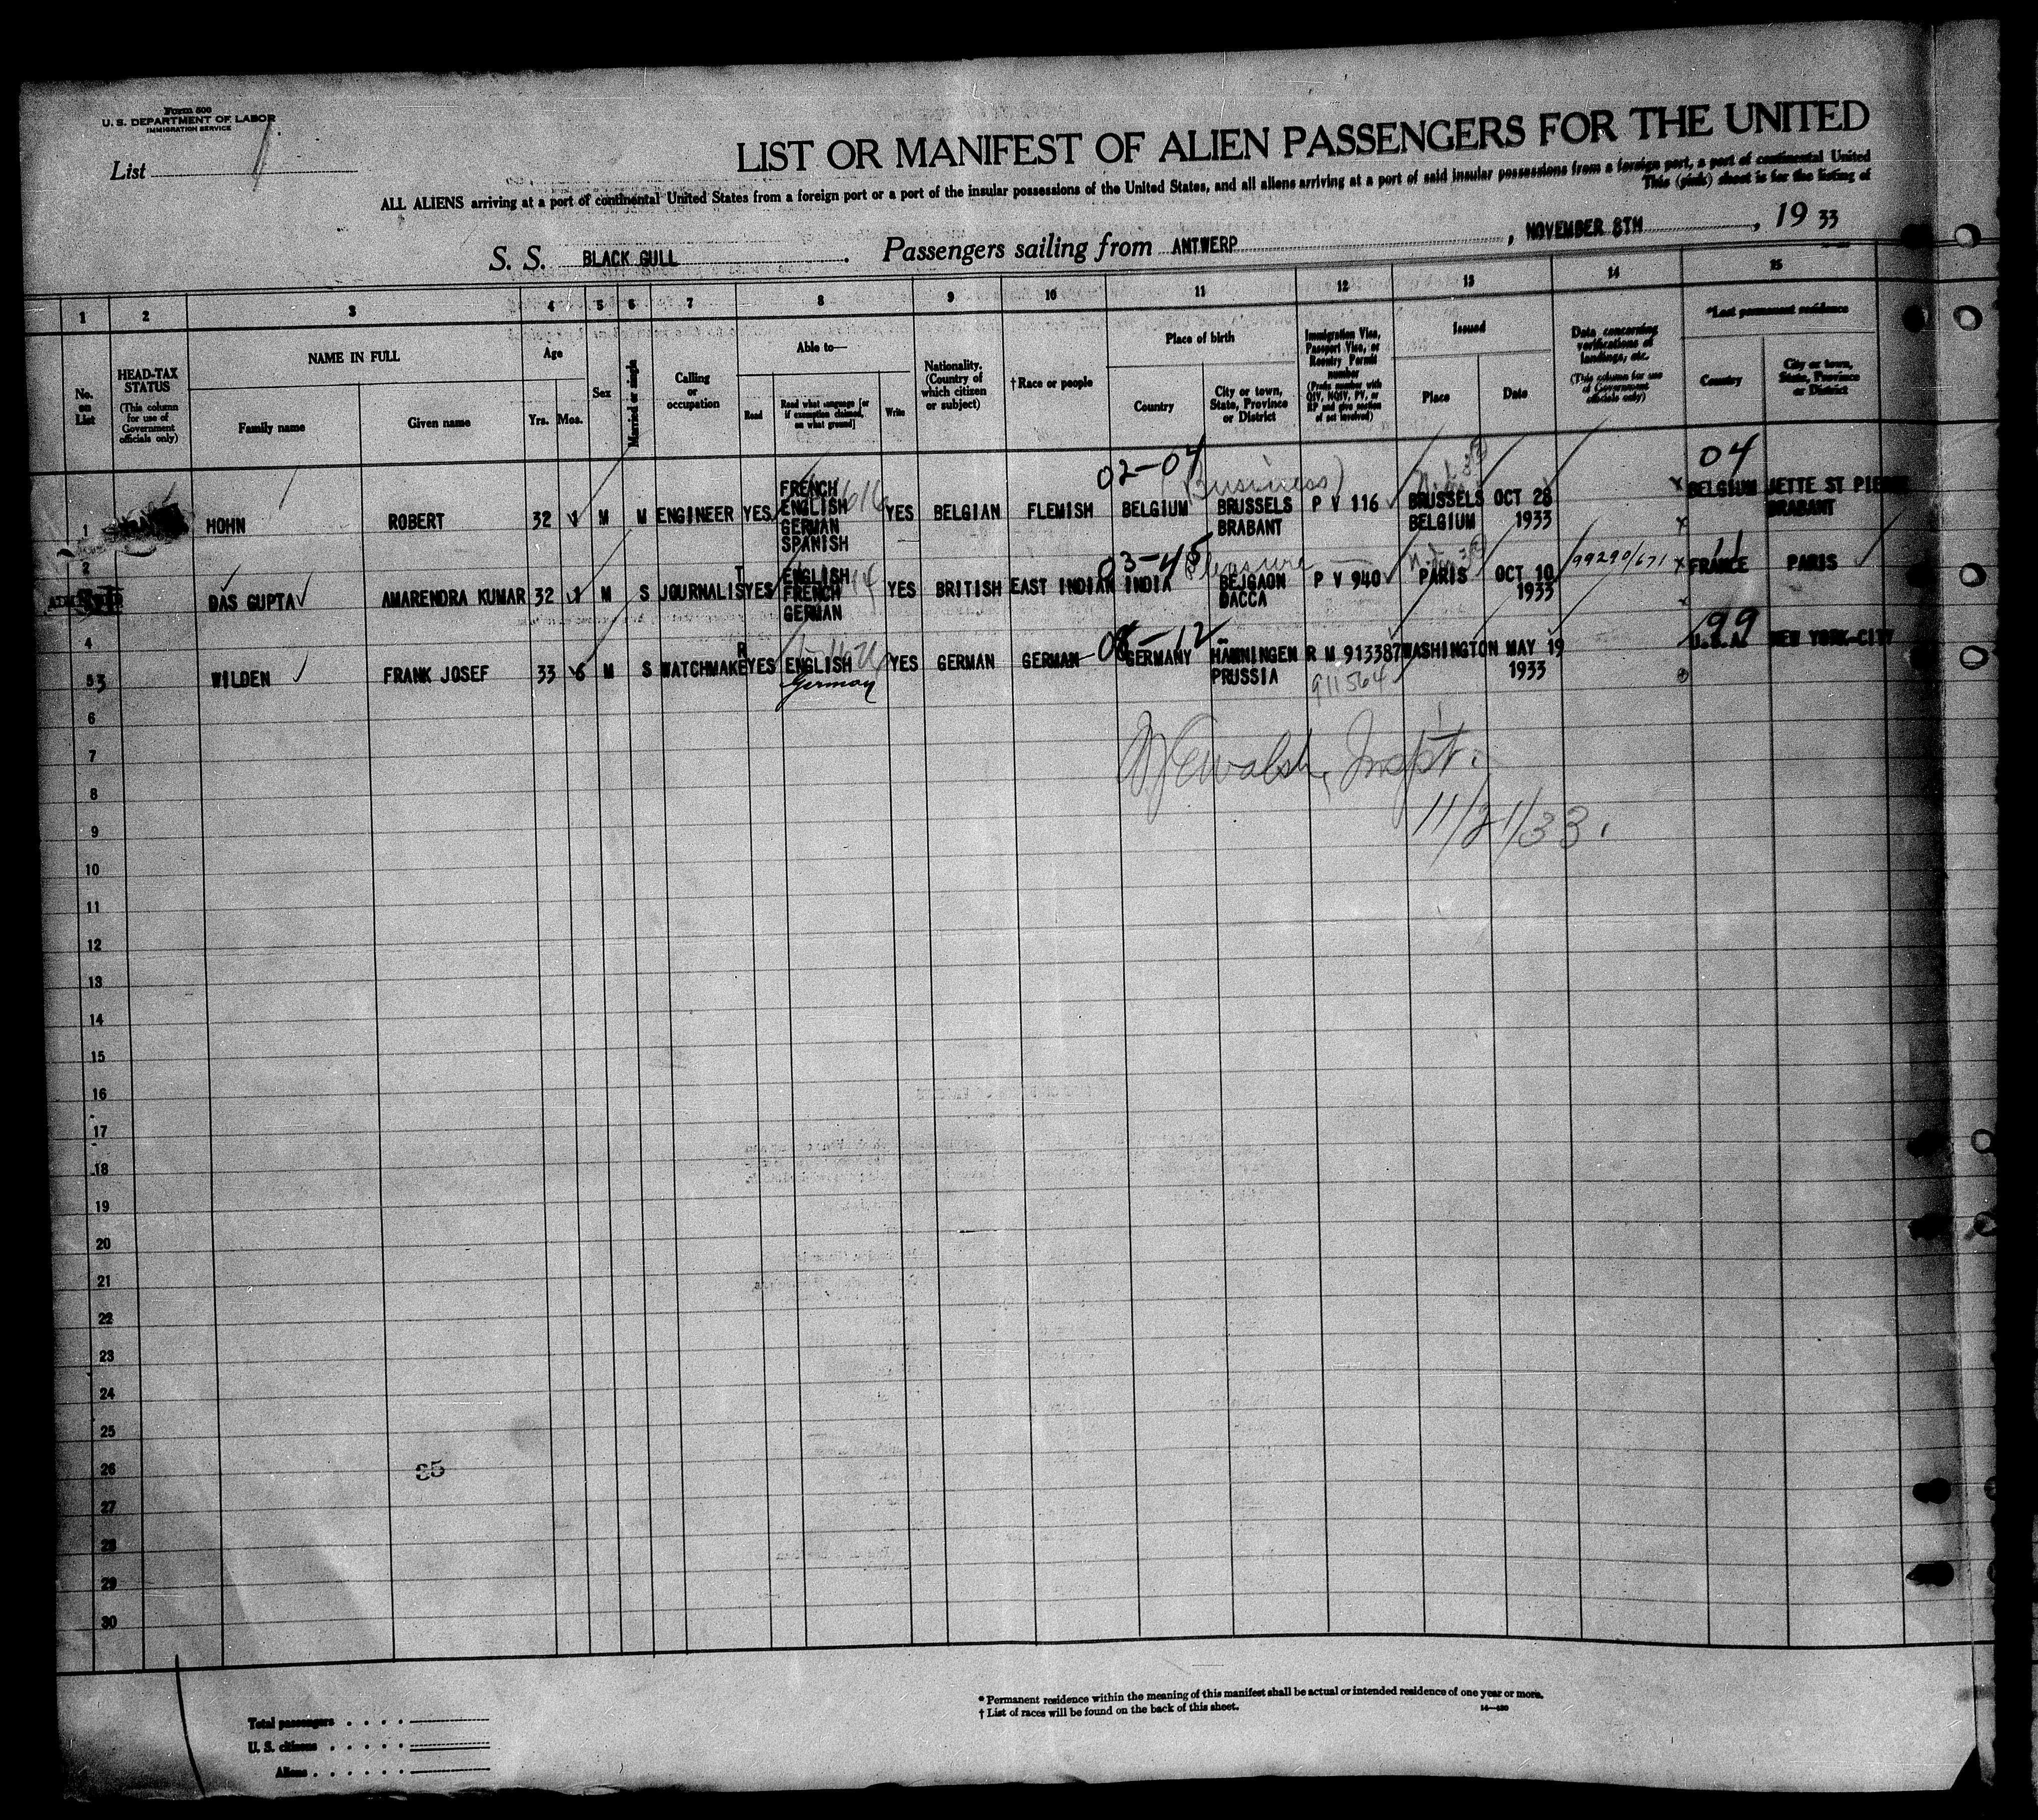 Form 500
U. S. DEPARTMENT OF LABOR
IMMIGRATION SERVICE
List 1
LIST OR MANIFEST OF ALIEN PASSENGERS FOR THE UNITED
ALL ALIENS arriving at a port of continental United States from a foreign port or a port of the insular possessions of the United States, and all aliens arriving at a port of said insular possessions from a foreign port, a port of continental United
This (pink) sheet is for the listing of
S. S. BLACK GULL. Passengers sailing from ANTWERP, NOVEMBER 8TH, 19 33
1 2 3 4 5 6 7 8 9 10 11 12 13 14 15
No. on List
HEAD-TAX STATUS
(This column for use of Government officials only)
NAME IN FULL
Family name
Given name
Age
Yrs. Mos.
Sex
Married or single
Calling or occupation
Able to—
Read
Read what language [or if exemption claimed, on what ground]
Write
Nationality. (Country of which citizen or subject)
†Race or people
Place of birth
Country
City or town, State, Province or District
Immigration Visa, Passport Visa, or Reentry Permit number
(Prefix number with QIV, NQIV, PV, or RP and give section of act involved)
Issued
Place
Date
Data concerning verifications of landings, etc.
(This column for use of Government officials only)
*Last permanent residence
Country
City or town, State, Province or District
02-04 (Business) 04
1 HOHN ROBERT 32 1 M M ENGINEER YES FRENCH ENGLISH GERMAN SPANISH YES BELGIAN FLEMISH BELGIUM BRUSSELS BRABANT P V 116 BRUSSELS BELGIUM OCT 28 1933 BELGIUM JETTE ST PIERRE BRABANT
03-45 Pleasure 99290/671 11
2 DAS GUPTA AMARENDRA KUMAR 32 1 M S JOURNALIST YES ENGLISH FRENCH GERMAN YES BRITISH EAST INDIAN INDIA BEJGAON DACCA P V 940 PARIS OCT 10 1933 FRANCE PARIS
4
08-12 99
53 WILDEN FRANK JOSEF 33 6 M S WATCHMAKER YES ENGLISH German YES GERMAN GERMAN GERMANY HÄMNINGEN PRUSSIA R M 913387 911564 WASHINGTON MAY 19 1933 U.S.A. NEW YORK CITY
6
Walsh, Inspt.
7
8
11/21/33.
9
10
11
12
13
14
15
16
17
18
19
20
21
22
23
24
25
26
35
27
28
29
30
* Permanent residence within the meaning of this manifest shall be actual or intended residence of one year or more.
† List of races will be found on the back of this sheet.
14—430
Total passengers
U. S. citizens
Aliens